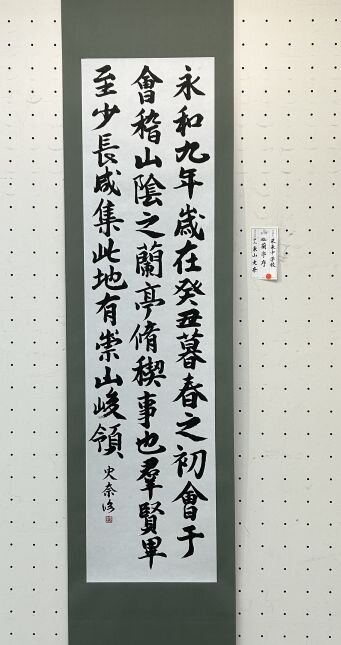 永和九年歳在癸丑暮春之初會于
會稽山陰之蘭亭脩稧事也羣賢畢
至少長咸集此地有崇山峻領
史奈
蘭亭序